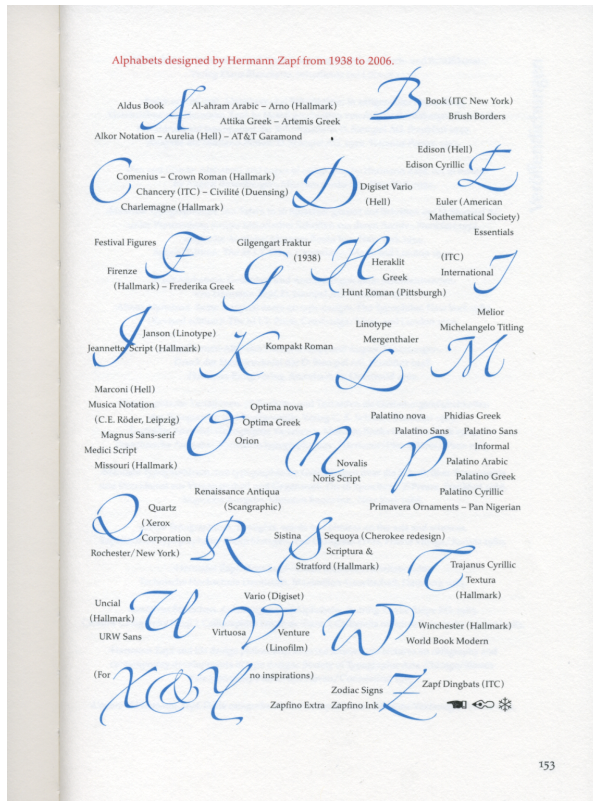 Alphabets designed by Hermann Zapf from 1938 to 2006.
A
Aldus Book Al-ahram Arabic – Arno (Hallmark)
Attika Greek – Artemis Greek
Alkor Notation – Aurelia (Hell) – AT&T Garamond
B
Book (ITC New York)
Brush Borders
C
Comenius – Crown Roman (Hallmark)
Chancery (ITC) – Civilité (Duensing)
Charlemagne (Hallmark)
D
Digiset Vario
(Hell)
E
Edison (Hell)
Edison Cyrillic
Euler (American
Mathematical Society)
Essentials
F
Festival Figures
Firenze
(Hallmark) – Frederika Greek
G
Gilgengart Fraktur
(1938)
H
Heraklit
Greek
Hunt Roman (Pittsburgh)
I
(ITC)
International
J
Janson (Linotype)
Jeannette Script (Hallmark)
K
Kompakt Roman
L
Linotype
Mergenthaler
M
Melior
Michelangelo Titling
Marconi (Hell)
Musica Notation
(C.E. Röder, Leipzig)
Magnus Sans-serif
Medici Script
Missouri (Hallmark)
O
Optima nova
Optima Greek
Orion
N
Novalis
Noris Script
P
Palatino nova Phidias Greek
Palatino Sans Palatino Sans
Informal
Palatino Arabic
Palatino Greek
Palatino Cyrillic
Primavera Ornaments – Pan Nigerian
Q
Quartz
(Xerox
Corporation
Rochester/New York)
R
Renaissance Antiqua
(Scangraphic)
S
Sistina Sequoya (Cherokee redesign)
Scriptura &
Stratford (Hallmark)
T
Trajanus Cyrillic
Textura
(Hallmark)
U
Uncial
(Hallmark)
URW Sans
V
Vario (Digiset)
Virtuosa Venture
(Linofilm)
W
Winchester (Hallmark)
World Book Modern
(For X&Y no inspirations)
Z
Zodiac Signs Zapf Dingbats (ITC)
Zapfino Extra Zapfino Ink
153